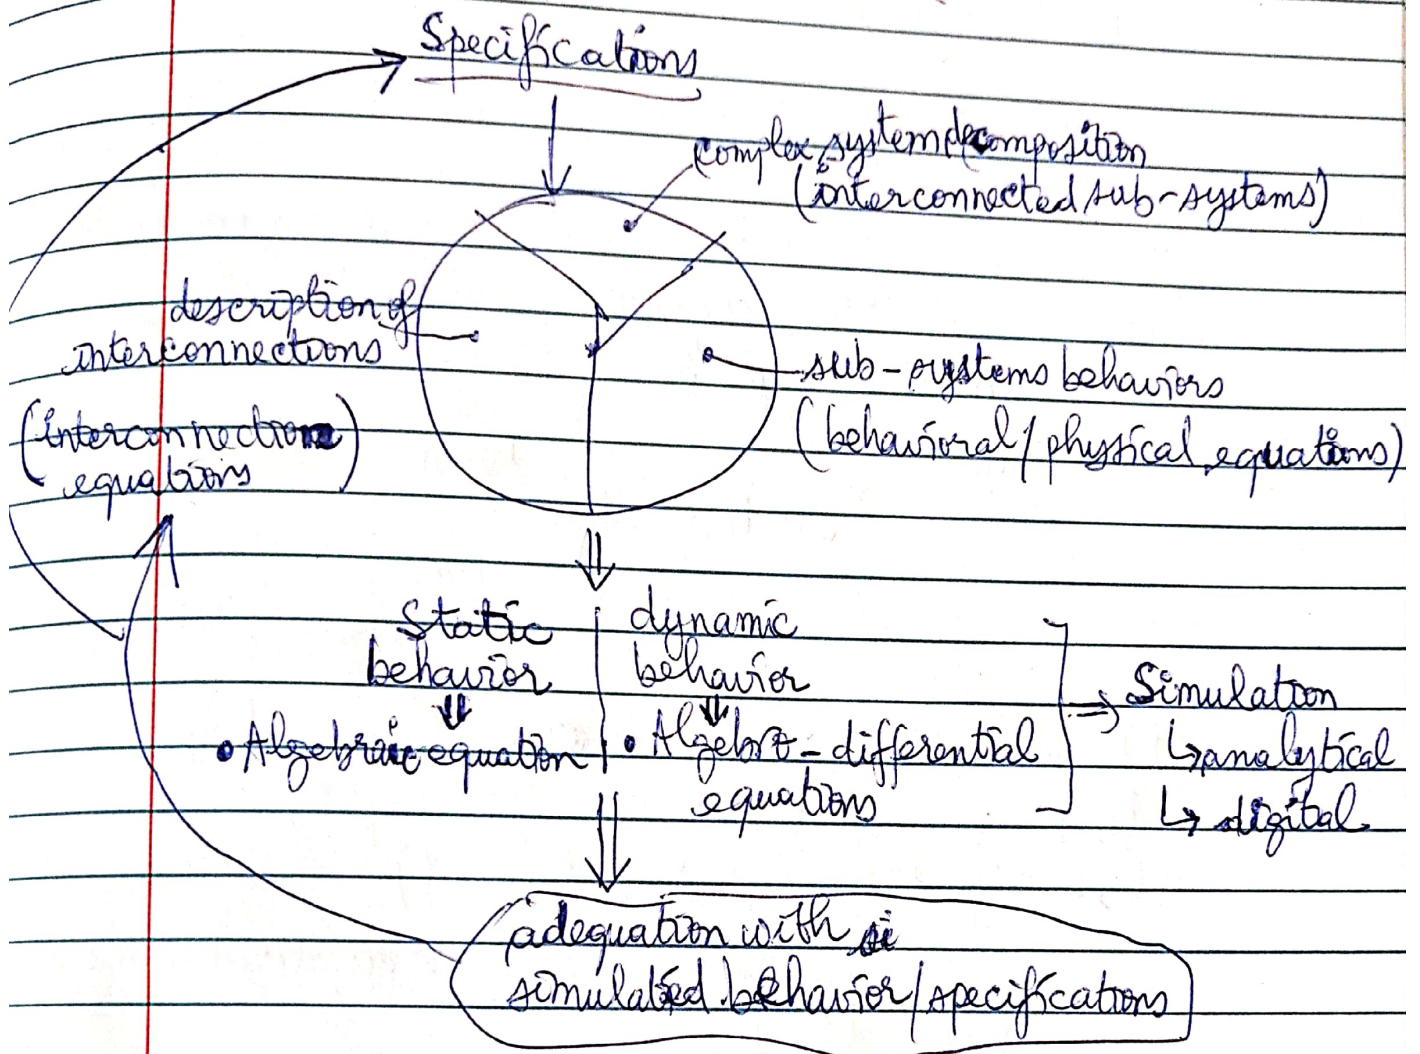 Specifications
complex system decomposition
(interconnected sub-systems)
description of
interconnections
(interconnection
equations)
sub-systems behaviors
(behavioral/physical equations)
Static
behavior
⇓
• Algebraic equation
dynamic
behavior
⇓
• Algebro-differential
equations
⇒ Simulation
↳ analytical
↳ digital
adequation with si
simulated behavior/specifications